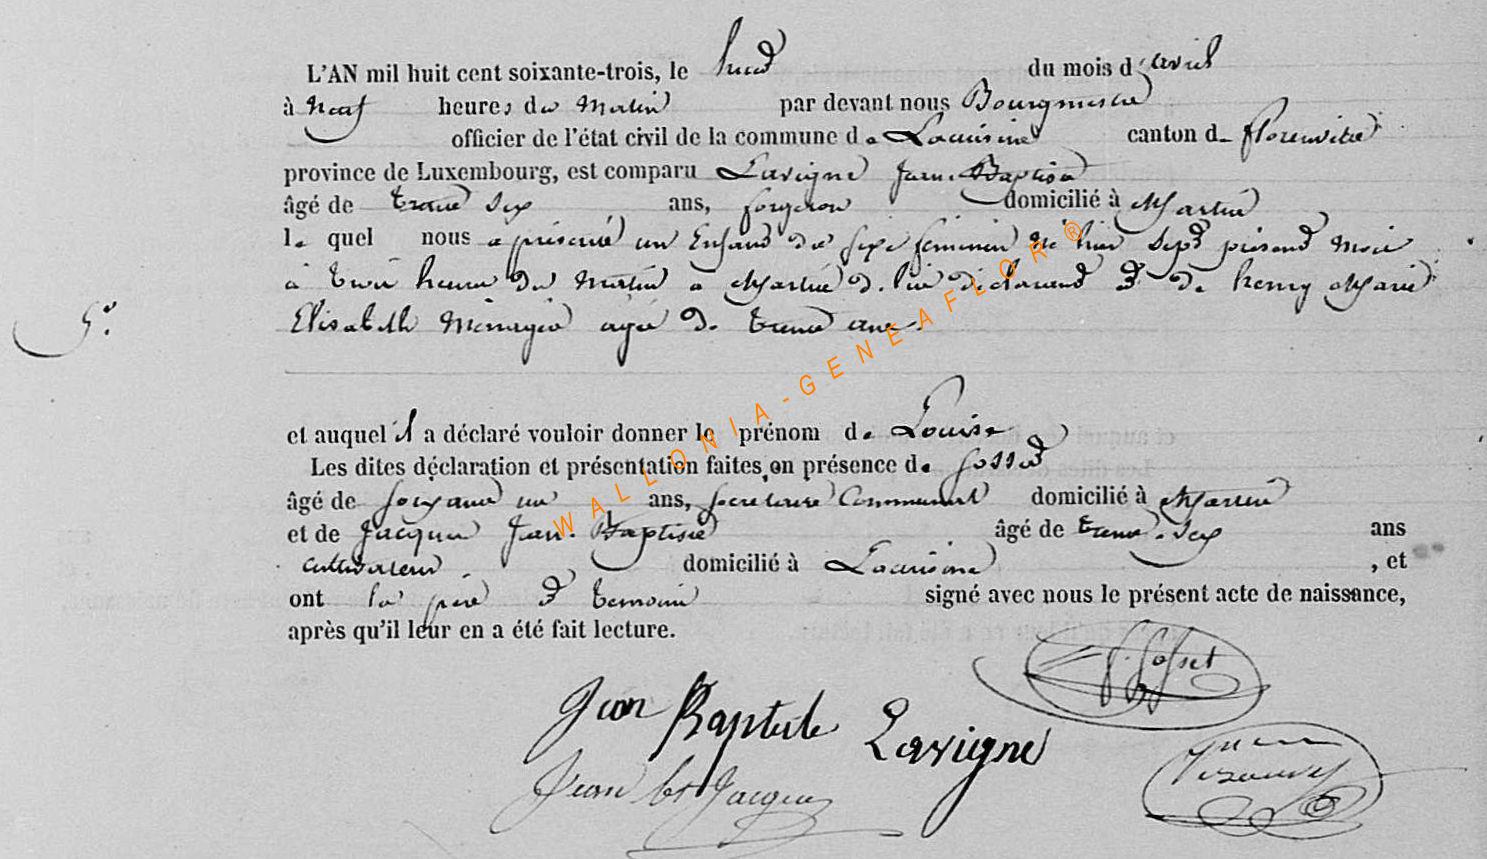 L'AN mil huit cent soixante-trois, le huit du mois d'avril
à neuf heures du Matin par devant nous Bourgmestre
officier de l'état civil de la commune de Lacuisine canton de florenville
province de Luxembourg, est comparu Lavigne Jean Baptiste
âgé de trente six ans, forgeron domicilié à Martué
le quel nous a présenté un Enfant du sexe feminin né hier sept présent mois
à trois heures du Matin a Martué de lui déclarant et de henry Marie
5e.
Elisabeth Ménagère agée de trente ans.
et auquel il a déclaré vouloir donner le prénom de Louise
Les dites déclaration et présentation faites en présence de Gosset
âgé de soixante un ans, secretaire Communal domicilié à Martué
et de Jacques Jean Baptiste âgé de trente-six ans
cultivateur domicilié à Lacuisine, et
ont le père et temoins signé avec nous le présent acte de naissance,
après qu'il leur en a été fait lecture.
Gosset
Jean Baptiste Lavigne
Jean bt Jacques
WALLONIA-GENEAFLOR ®